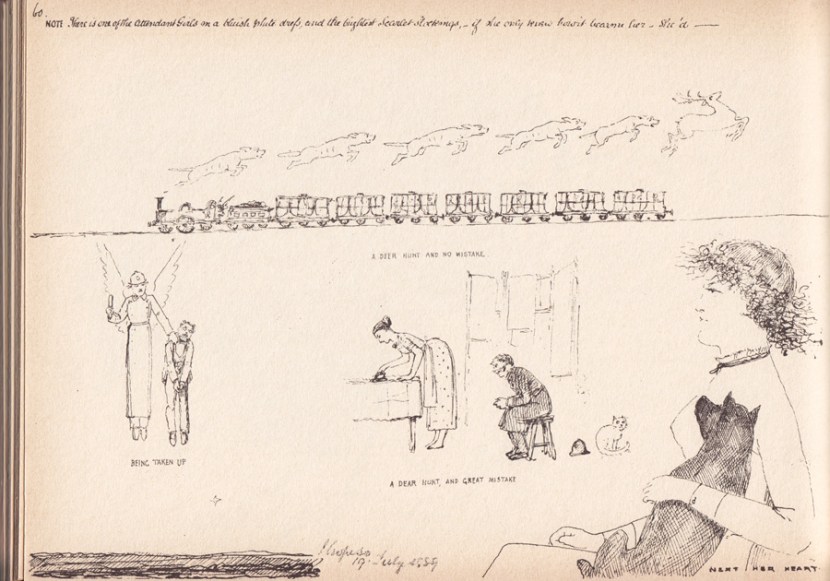 60.
NOTE Here is one of the Attendant Girls in a bluish white dress, and the brightest Scarlet Stockings, – if she only knew how it became her – She'd —
A DEER HUNT AND NO MISTAKE.
BEING TAKEN UP
A DEAR HUNT, AND GREAT MISTAKE
19 July
NEXT HER HEART.